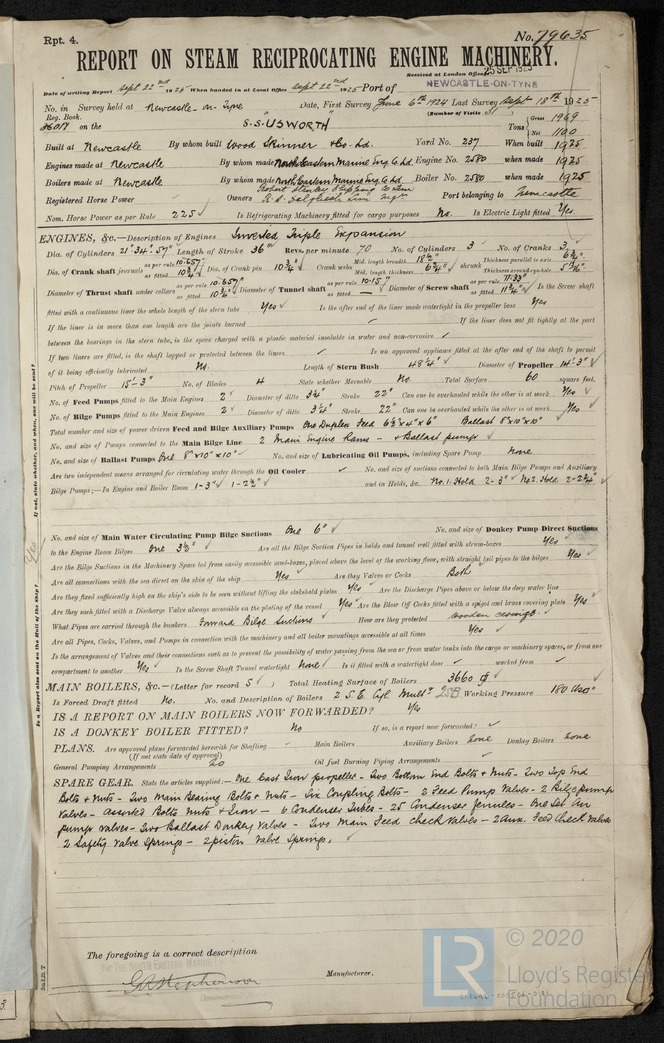 Rpt. 4.
No. 79635
REPORT ON STEAM RECIPROCATING ENGINE MACHINERY.
Received at London Office 25 SEP 1925
Date of writing Report Sept 22nd 1925 When handed in at Local Office Sept 22nd 1925 Port of NEWCASTLE-ON-TYNE
No. in Survey held at Newcastle-on-Tyne Date, First Survey June 6th 1924 Last Survey Sept 18th 1925
Reg. Book. (Number of Visits
on the S.S. USWORTH Tons Gross 1969 Net 1100
Built at Newcastle By whom built Wood Skinner & Co. Ld. Yard No. 237 When built 1925
Engines made at Newcastle By whom made North Eastern Marine Eng Co Ld. Engine No. 2580 when made 1925
Boilers made at Newcastle By whom made North Eastern Marine Eng Co Ld. Boiler No. 2580 when made 1925
Registered Horse Power Owners Port belonging to Newcastle
Nom. Horse Power as per Rule 225 Is Refrigerating Machinery fitted for cargo purposes No. Is Electric Light fitted Yes
ENGINES, &c.—Description of Engines Inverted Triple Expansion
Dia. of Cylinders 21" 34" 57" Length of Stroke 36" Revs. per minute 70 No. of Cylinders 3 No. of Cranks 3
Dia. of Crank shaft journals as per rule 10.657 as fitted 10 3/4" Dia. of Crank pin 10 3/4" Crank webs Mid. length breadth 18 1/2" Mid. length thickness 6 3/4" shrunk Thickness parallel to axis 6 3/4" Thickness around eye-hole
Diameter of Thrust shaft under collars as per rule 10.657 as fitted 10 3/4" Diameter of Tunnel shaft as per rule 10.157 as fitted — Diameter of Screw shaft as per rule 11.33" as fitted 11 3/4" Is the Screw shaft
fitted with a continuous liner the whole length of the stern tube Yes Is the after end of the liner made watertight in the propeller boss Yes
If the liner is in more than one length are the joints burned If the liner does not fit tightly at the part
between the bearings in the stern tube, is the space charged with a plastic material insoluble in water and non-corrosive
If two liners are fitted, is the shaft lapped or protected between the liners Is an approved appliance fitted at the after end of the shaft to permit
of it being efficiently lubricated No. Length of Stern Bush 48 1/4" Diameter of Propeller 14'-3"
Pitch of Propeller 15'-3" No. of Blades 4 State whether Moveable No. Total Surface 60 square feet.
No. of Feed Pumps fitted to the Main Engines 2 Diameter of ditto 3 1/4" Stroke 22" Can one be overhauled while the other is at work Yes
No. of Bilge Pumps fitted to the Main Engines 2 Diameter of ditto 3 1/4" Stroke 22" Can one be overhauled while the other is at work Yes
Total number and size of power driven Feed and Bilge Auxiliary Pumps One Duplex Feed 6 1/2 x 4" x 6" Ballast 8" x 10" x 10"
No. and size of Pumps connected to the Main Bilge Line 2 Main Engine Rams - & Ballast pump
No. and size of Ballast Pumps One 8" x 10" x 10" No. and size of Lubricating Oil Pumps, including Spare Pump none
Are two independent means arranged for circulating water through the Oil Cooler No. and size of suctions connected to both Main Bilge Pumps and Auxiliary
Bilge Pumps;—In Engine and Boiler Room 1-3" 1-2 1/2" and in Holds, &c. No. 1. Hold 2-3" No 2. Hold 2-2 3/4"
No. and size of Main Water Circulating Pump Bilge Suctions One 6" No. and size of Donkey Pump Direct Suctions
to the Engine Room Bilges One 3 1/2" Are all the Bilge Suction Pipes in holds and tunnel well fitted with strum-boxes Yes
Are the Bilge Suctions in the Machinery Space led from easily accessible mud-boxes, placed above the level of the working floor, with straight tail pipes to the bilges Yes
Are all connections with the sea direct on the skin of the ship Yes Are they Valves or Cocks Both
Are they fixed sufficiently high on the ship's side to be seen without lifting the stokehold plates Yes Are the Discharge Pipes above or below the deep water line
Are they each fitted with a Discharge Valve always accessible on the plating of the vessel Yes Are the Blow Off Cocks fitted with a spigot and brass covering plate Yes
What Pipes are carried through the bunkers Forward Bilge Suctions How are they protected wooden casings
Are all Pipes, Cocks, Valves, and Pumps in connection with the machinery and all boiler mountings accessible at all times Yes
Is the arrangement of Valves and their connections such as to prevent the possibility of water passing from the sea or from water tanks into the cargo or machinery spaces, or from one
compartment to another Yes Is the Screw Shaft Tunnel watertight None Is it fitted with a watertight door worked from
MAIN BOILERS, &c.—(Letter for record S) Total Heating Surface of Boilers 3660
Is Forced Draft fitted No. No. and Description of Boilers 2 S.E. Cyl. Mult. 2SB Working Pressure 180 lbs
IS A REPORT ON MAIN BOILERS NOW FORWARDED? Yes
IS A DONKEY BOILER FITTED? No If so, is a report now forwarded?
PLANS. Are approved plans forwarded herewith for Shafting Main Boilers Auxiliary Boilers none Donkey Boilers none
(If not state date of approval)
General Pumping Arrangements no Oil fuel Burning Piping Arrangements
SPARE GEAR. State the articles supplied:— One Cast Iron propeller - Two Bottom End Bolts & Nuts - Two Top End
Bolts & Nuts - Two Main Bearing Bolts & Nuts - Six Coupling Bolts - 2 Feed Pump Valves - 2 Bilge pump
Valves - assorted Bolts nuts & Iron - 6 Condenser Tubes - 25 Condenser ferrules - One Set Air
pump valves - Two Ballast Donkey Valves - Two Main Feed check Valves - 2 Aux. Feed Check Valves
2 Safety Valve Springs - 2 piston Valve Springs.
The foregoing is a correct description
Manufacturer.
Is a Report also sent on the Hull of the Ship? If not, state whether, and when, one will be sent?
Yes
© 2020
LR
Lloyd's Register
Foundation